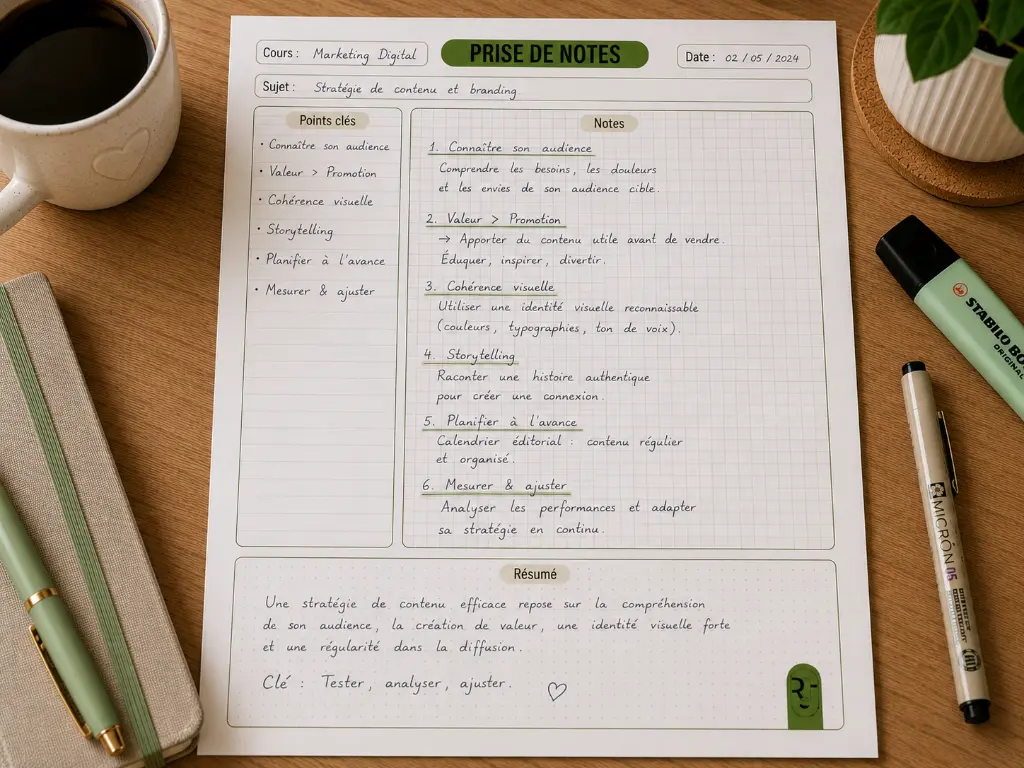 PRISE DE NOTES
Cours : Marketing Digital
Date : 02 / 05 / 2024
Sujet : Stratégie de contenu et branding
Points clés
• Connaître son audience
• Valeur > Promotion
• Cohérence visuelle
• Storytelling
• Planifier à l'avance
• Mesurer & ajuster
Notes
1. Connaître son audience
Comprendre les besoins, les douleurs
et les envies de son audience cible.
2. Valeur > Promotion
→ Apporter du contenu utile avant de vendre.
Éduquer, inspirer, divertir.
3. Cohérence visuelle
Utiliser une identité visuelle reconnaissable
(couleurs, typographies, ton de voix).
4. Storytelling
Raconter une histoire authentique
pour créer une connexion.
5. Planifier à l'avance
Calendrier éditorial : contenu régulier
et organisé.
6. Mesurer & ajuster
Analyser les performances et adapter
sa stratégie en continu.
Résumé
Une stratégie de contenu efficace repose sur la compréhension
de son audience, la création de valeur, une identité visuelle forte
et une régularité dans la diffusion.
Clé : Tester, analyser, ajuster.
STABILO BO
ORIGINAL
MICRON 05